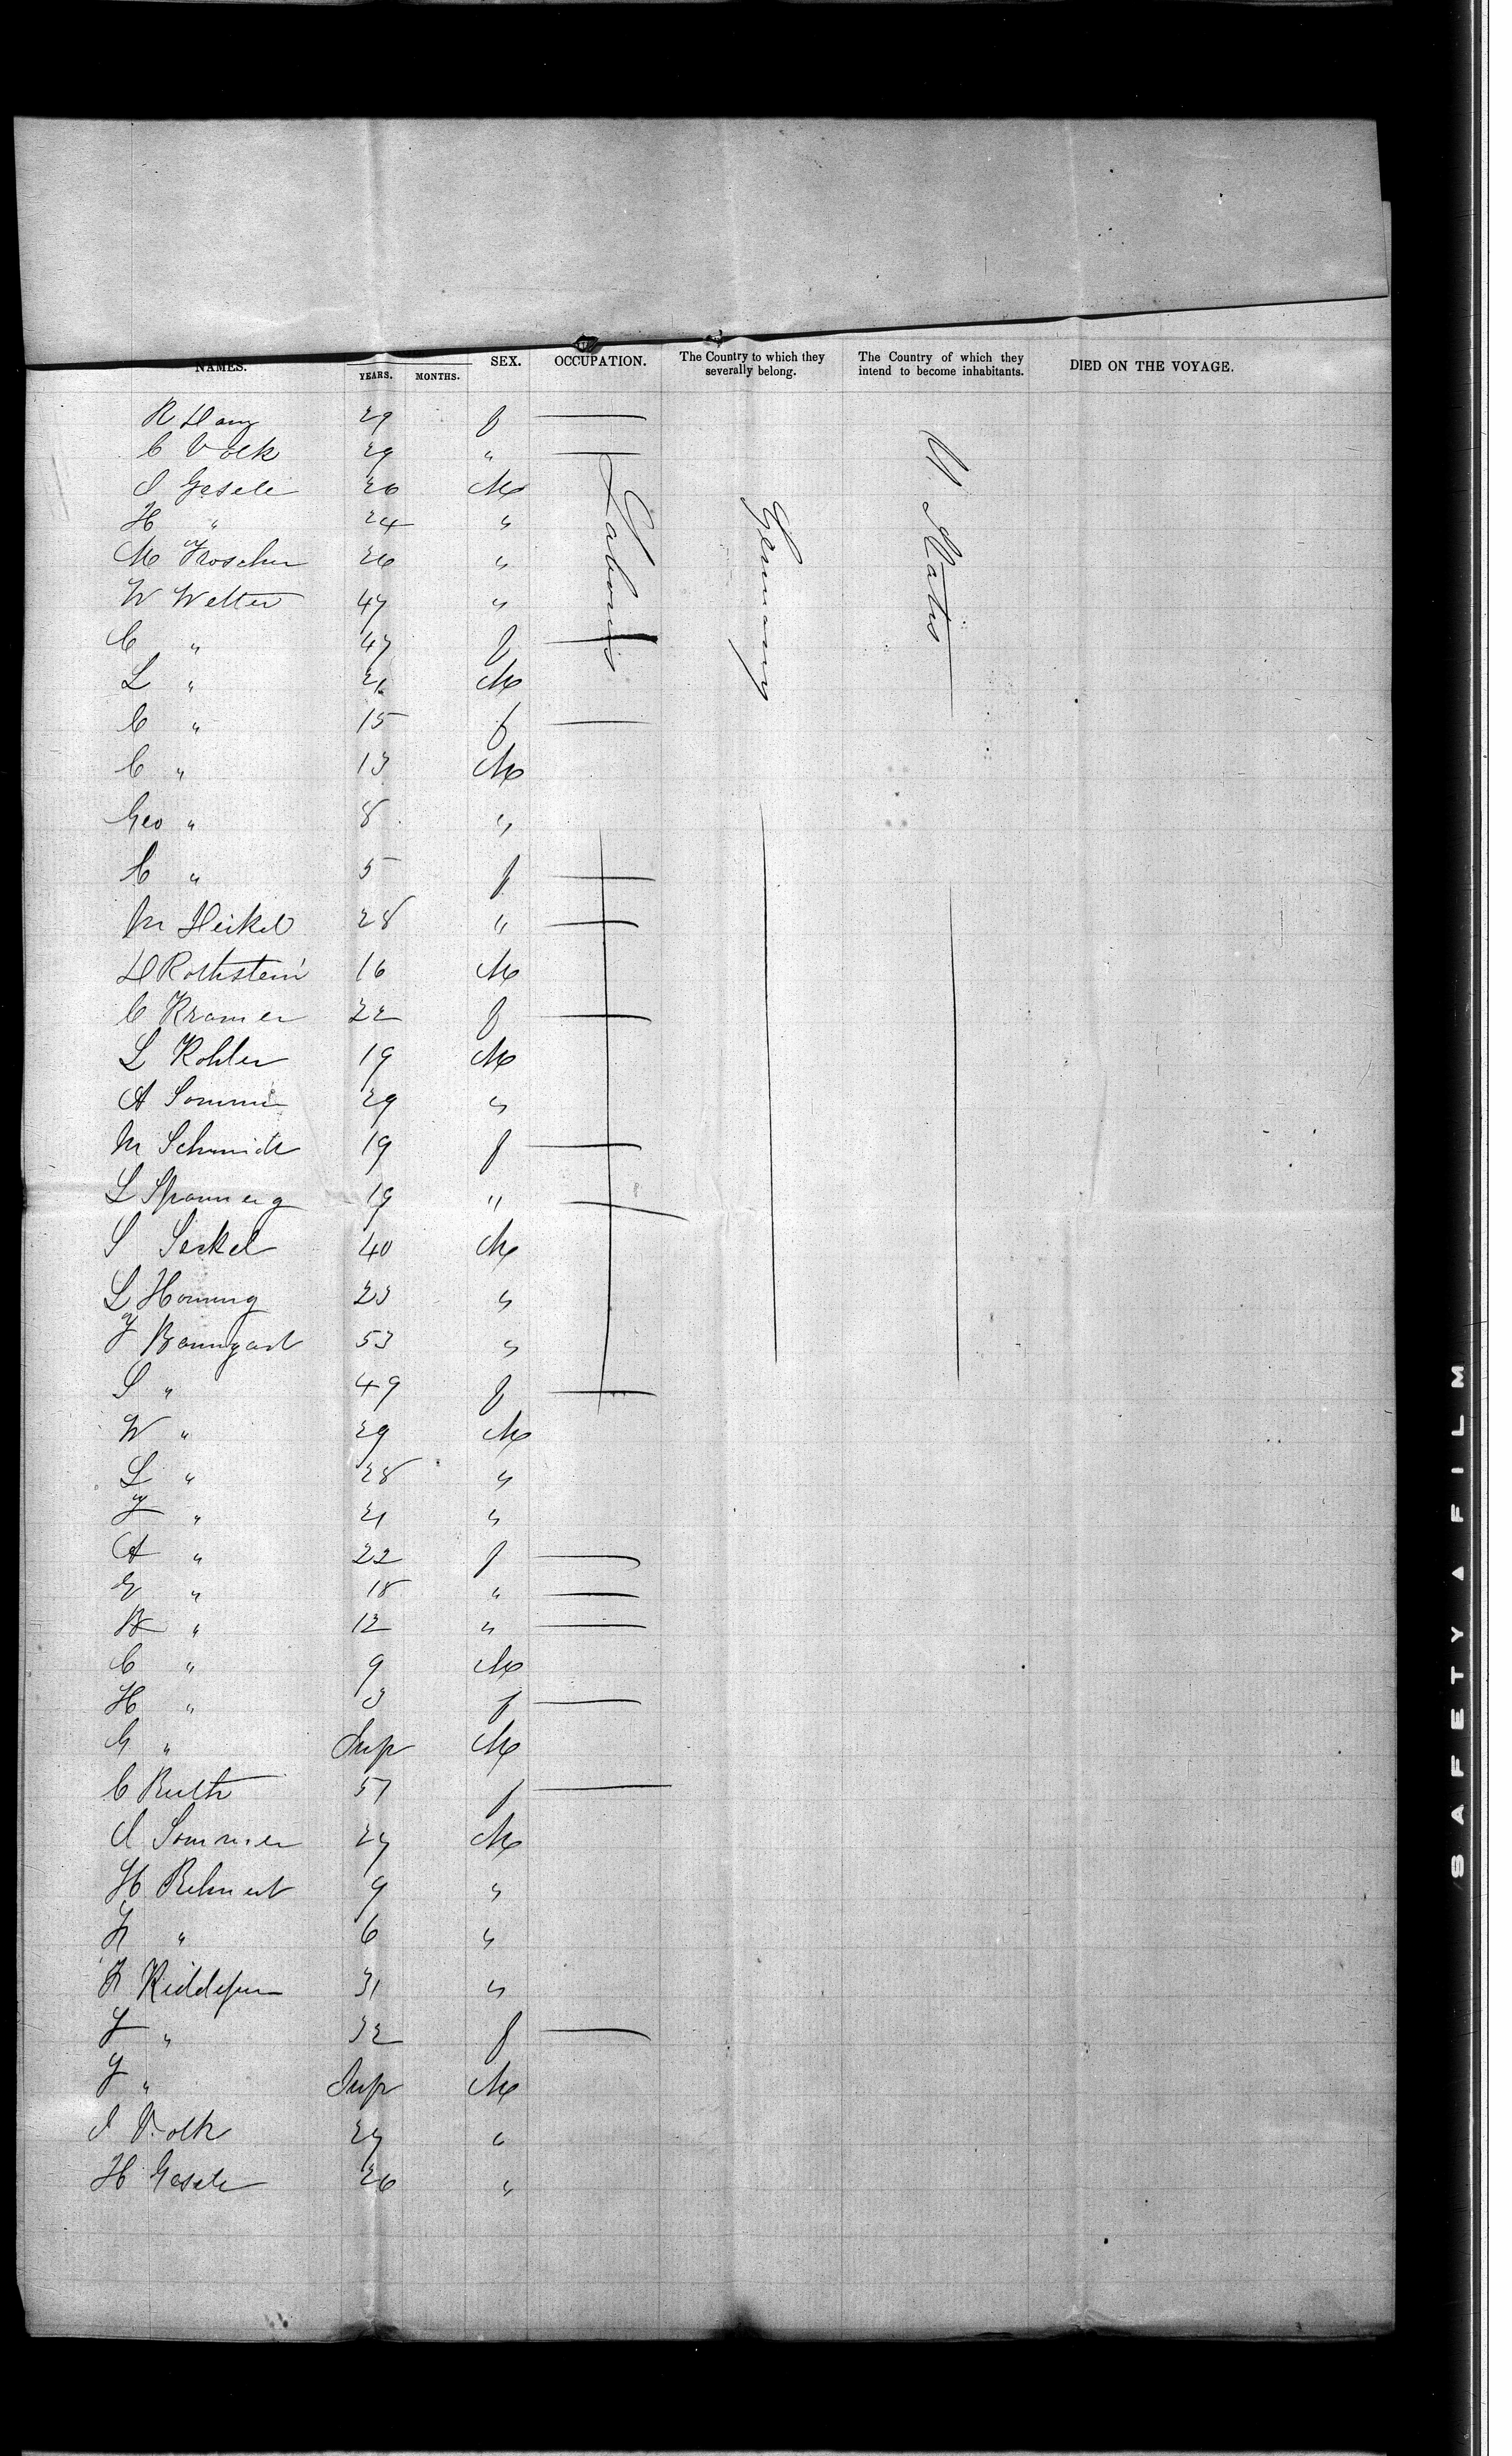 NAMES. YEARS. MONTHS. SEX. OCCUPATION. The Country to which they severally belong. The Country of which they intend to become inhabitants. DIED ON THE VOYAGE.
R 29 f —
C Volk 29 " —
J Gesele 26 M
H " 24 "
M Froscher 26 "
W Welter 47 "
C " 47 f —
L " 21 M
C " 15 f —
C " 13 M
Geo " 8 "
C " 5 f —
M Heikel 28 " —
H Rothstein 16 M
C Kramer 22 f —
L Kohler 19 M
A Sommer 29 "
M Schmidt 19 f —
L 19 " —
S Seckel 40 M
L Hornung 23 "
J Baumgart 53 "
S " 49 f —
W " 29 M
L " 28 "
J " 21 "
A " 22 f —
E " 18 " —
B " 12 " —
C " 9 M
H " 3 f —
G " Inf M
C Ruth 57 f —
J Sommer 27 M
H 9 "
F " 6 "
F 31 "
J " 32 f —
J " Inf M
J Volk 27 "
H Gesele 26 "
Laborers
Germany
U. States
SAFETY FILM